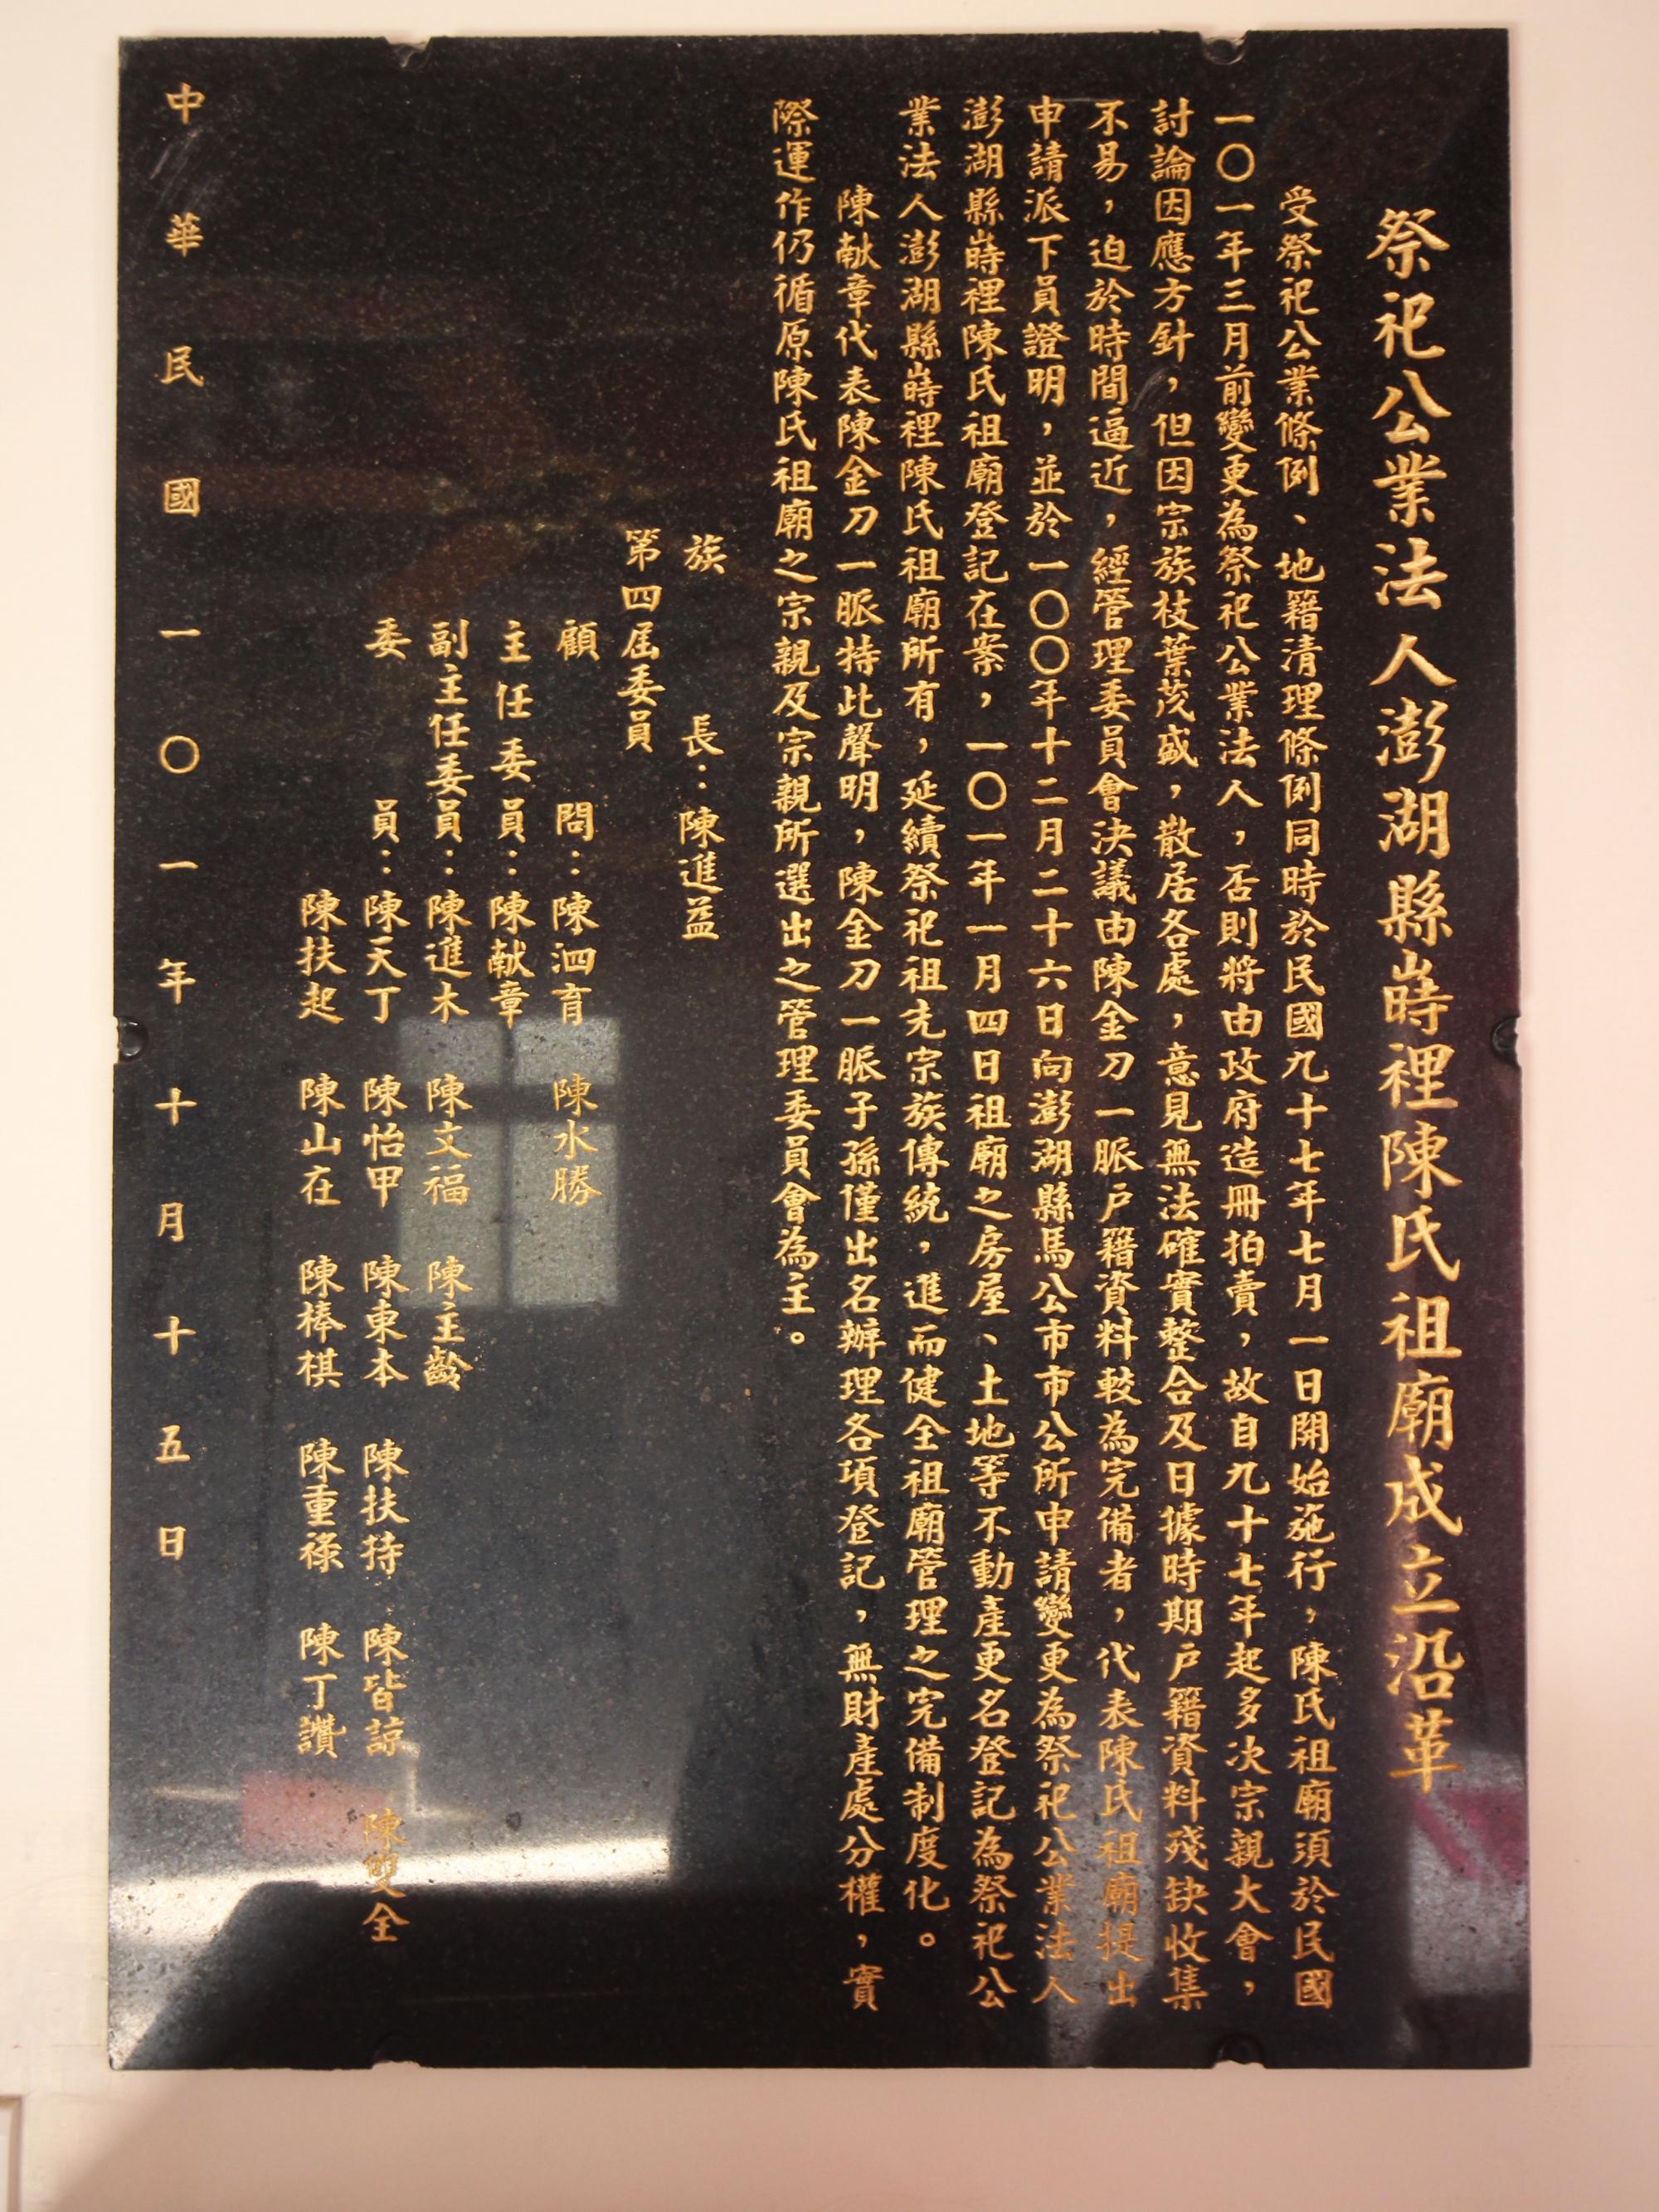 祭祀公業法人澎湖縣嵵裡陳氏祖廟成立沿革
受祭祀公業條例、地籍清理條例同時於民國九十七年七月一日開始施行，陳氏祖廟須於民國
一〇一年三月前變更為祭祀公業法人，否則將由政府造冊拍賣，故自九十七年起多次宗親大會，
討論因應方針，但因宗族枝葉茂盛，散居各處，意見無法確實整合及日據時期戶籍資料殘缺收集
不易，迫於時間逼近，經管理委員會決議由陳金刀一脈戶籍資料較為完備者，代表陳氏祖廟提出
申請派下員證明，並於一〇〇年十二月二十六日向澎湖縣馬公市市公所申請變更為祭祀公業法人
澎湖縣嵵裡陳氏祖廟登記在案，一〇一年一月四日祖廟之房屋、土地等不動產更名登記為祭祀公
業法人澎湖縣嵵裡陳氏祖廟所有，延續祭祀祖先宗族傳統，進而健全祖廟管理之完備制度化。
陳献章代表陳金刀一脈持此聲明，陳金刀一脈子孫僅出名辦理各項登記，無財產處分權，實
際運作仍循原陳氏祖廟之宗親及宗親所選出之管理委員會為主。
族　　長：陳進益
第四屆委員
顧　　問：陳泗育　陳水勝
主任委員：陳献章
副主任委員：陳進木　陳文福　陳主齡
委　　員：陳天丁　陳怡甲　陳東本　陳扶持　陳皆諒　陳雙全
陳扶起　陳山在　陳棒祺　陳重祿　陳丁讚
中華民國一〇一年十月十五日